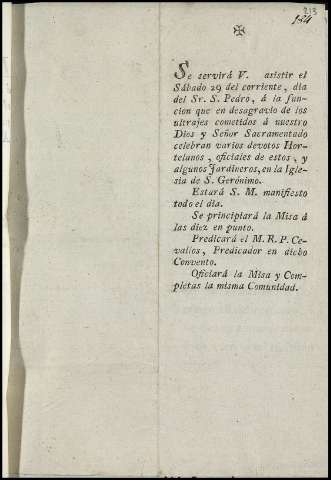 213
184
✠
Se servirá V. asistir el
Sábado 29 del corriente, dia
del Sr. S. Pedro, á la fun-
cion que en desagravio de los
ultrajes cometidos á nuestro
Dios y Señor Sacramentado
celebran varios devotos Hor-
telanos, oficiales de estos, y
algunos Jardineros, en la Igle-
sia de S. Gerónimo.
Estará S. M. manifiesto
todo el dia.
Se principiará la Misa á
las diez en punto.
Predicará el M. R. P. Ce-
vallos, Predicador en dicho
Convento.
Oficiará la Misa y Com-
pletas la misma Comunidad.